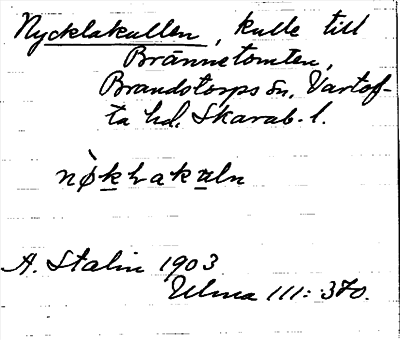 Nycklakullen, kulle till
Brännetomten,
Brandstorps sn. Vartof-
ta hd. Skarab. l.
nø̀kḻakuln
A. Stalin 1903
Ulma 111: 370.